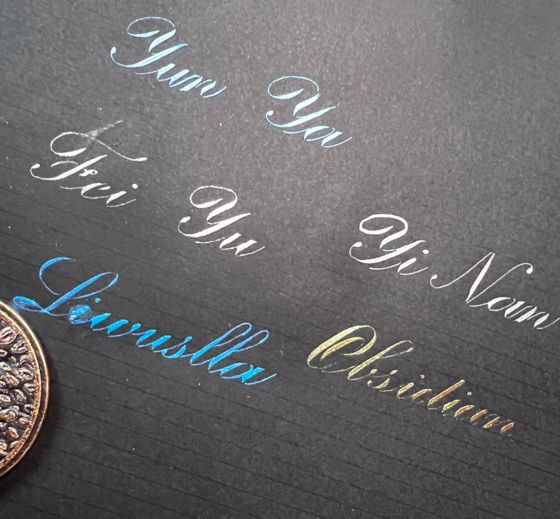 Yun Ya
Fei Yu Yi Nan
Liuruslla Obsidian